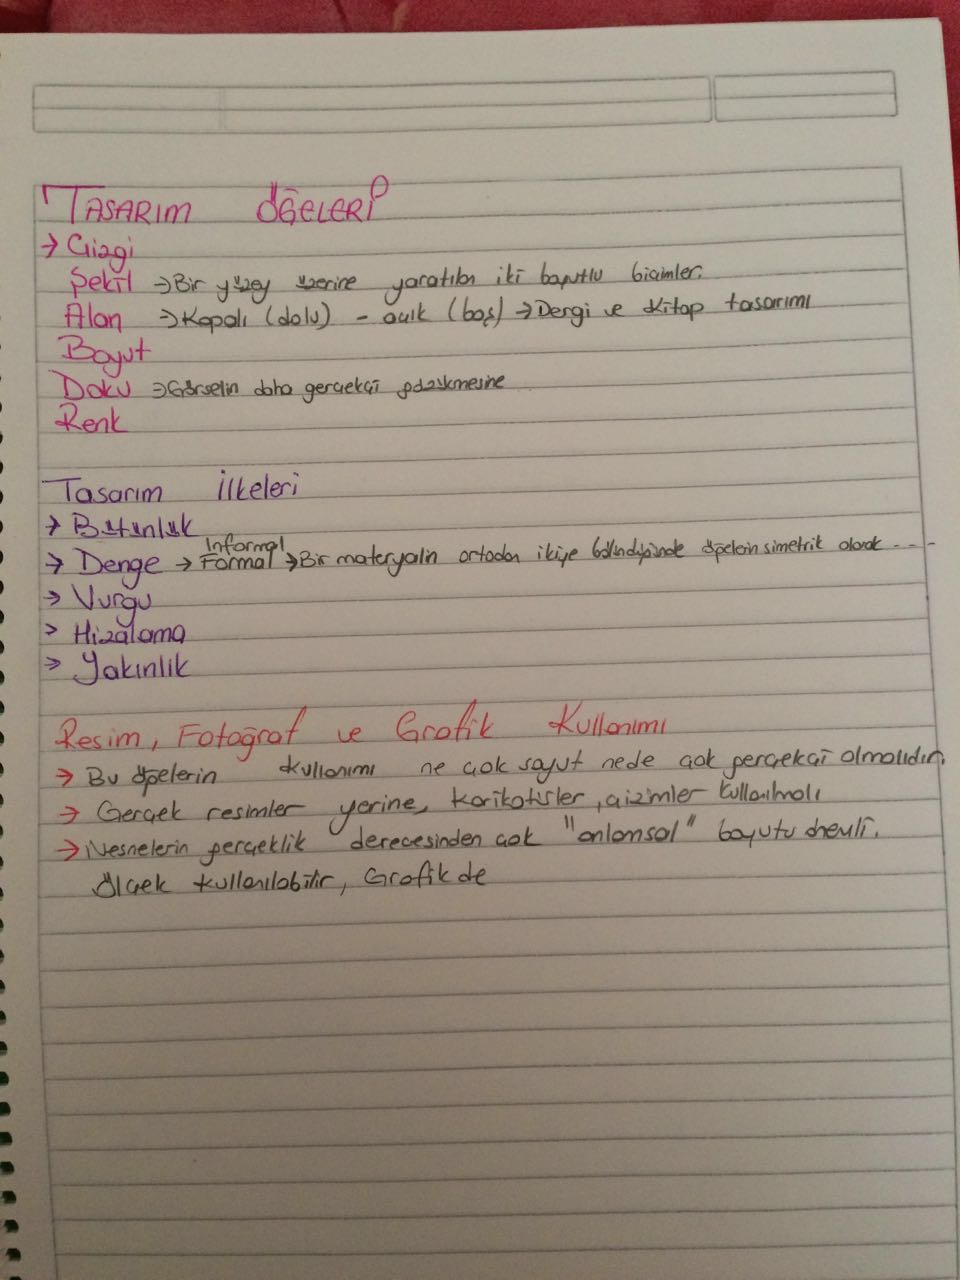 TASARIM ÖĞELERİ
→ Çizgi
Şekil → Bir yüzey üzerine yaratılan iki boyutlu biçimler.
Alan → Kapalı (dolu) - açık (boş) → Dergi ve kitap tasarımı
Boyut
Doku → Görselin daha gerçekçi gözükmesine
Renk
Tasarım İlkeleri
→ Bütünlük
Informal
→ Denge → Formal → Bir materyalin ortadan ikiye bölündüğünde öğelerin simetrik olarak ----
→ Vurgu
> Hizalama
→ Yakınlık
Resim, Fotoğraf ve Grafik Kullanımı
→ Bu öğelerin kullanımı ne çok soyut nede çok gerçekçi olmalıdır.
→ Gerçek resimler yerine, karikatürler, çizimler kullanılmalı
→ Nesnelerin gerçeklik derecesinden çok "anlamsal" boyutu önemli.
Ölçek kullanılabilir, Grafik de